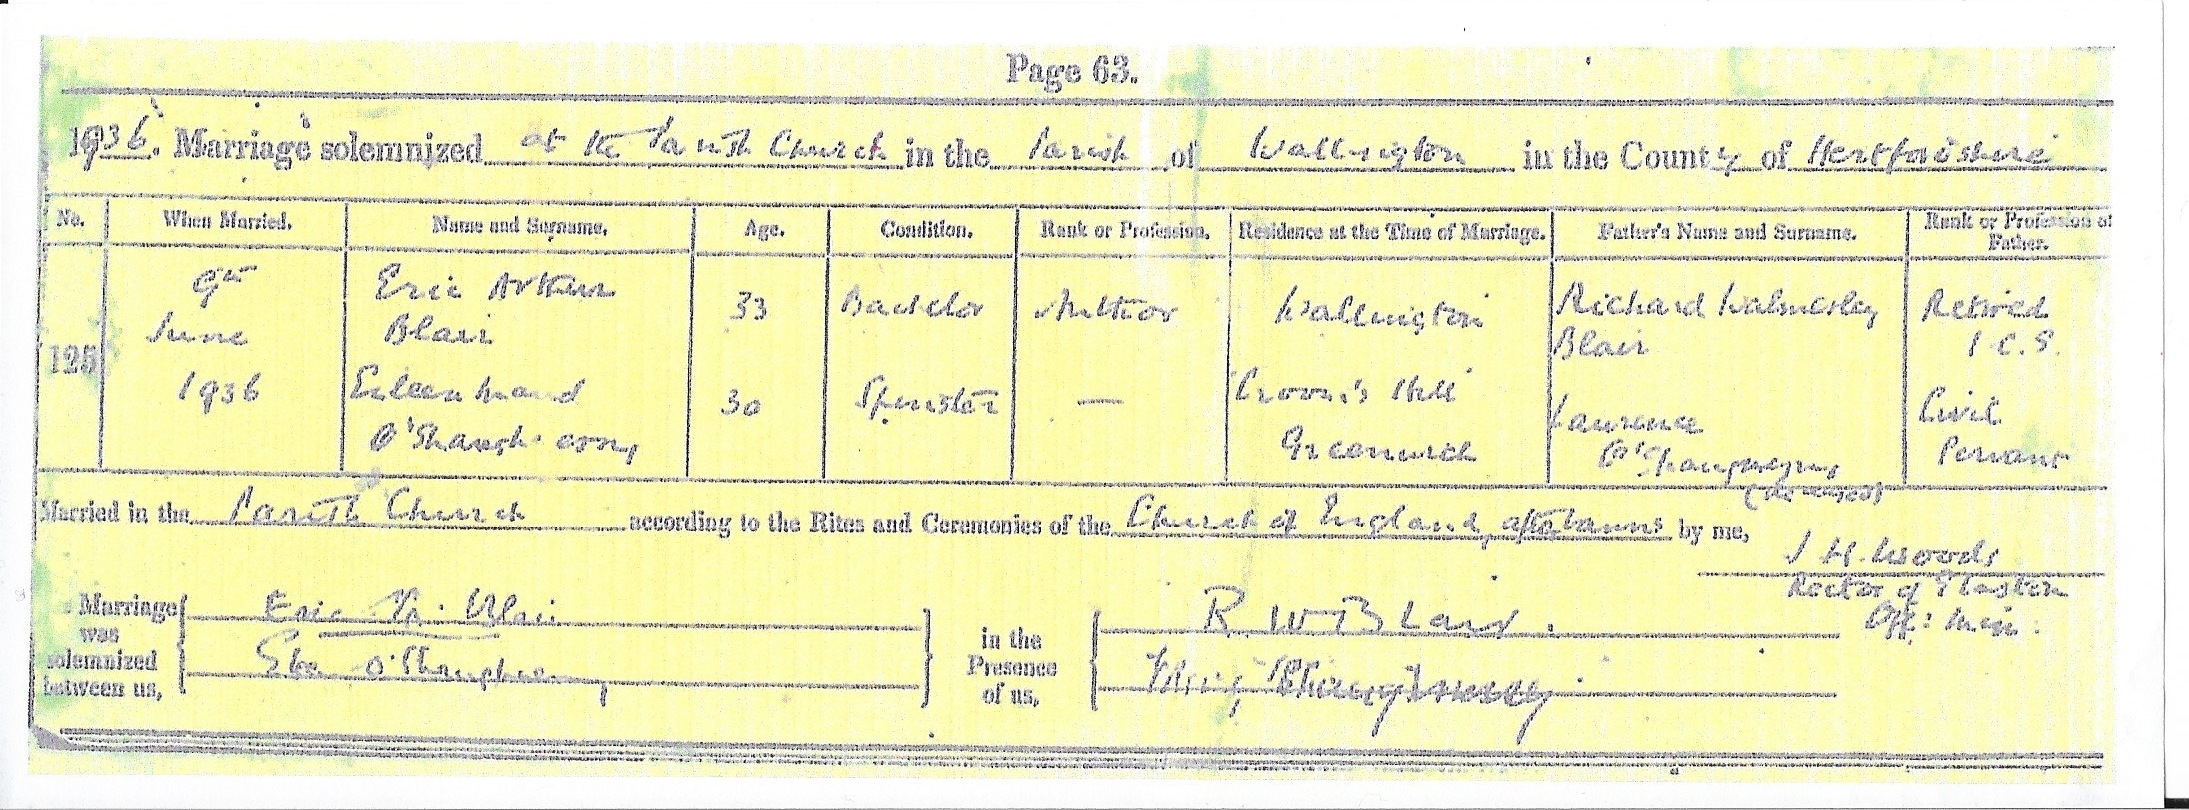 Page 63.
1936. Marriage solemnized at the Parish Church in the Parish of Wallington in the County of Hertfordshire
No. When Married. Name and Surname. Age. Condition. Rank or Profession. Residence at the Time of Marriage. Father's Name and Surname. Rank or Profession of Father.
125
9th June 1936
Eric Arthur Blair 33 Bachelor Author Wallington Richard Walmesley Blair Retired I.C.S.
Eileen Maud O'Shaughnessy 30 Spinster — Croom's Hill Greenwich Laurence O'Shaughnessy (deceased) Civil Servant
Married in the Parish Church according to the Rites and Ceremonies of the Church of England after banns by me,
J H. Woods
Rector of
Off: Min:
Marriage was solemnized between us,
Eric A. Blair
O'Shaughnessy
in the Presence of us,
R W Blair.
O'Shaughnessy